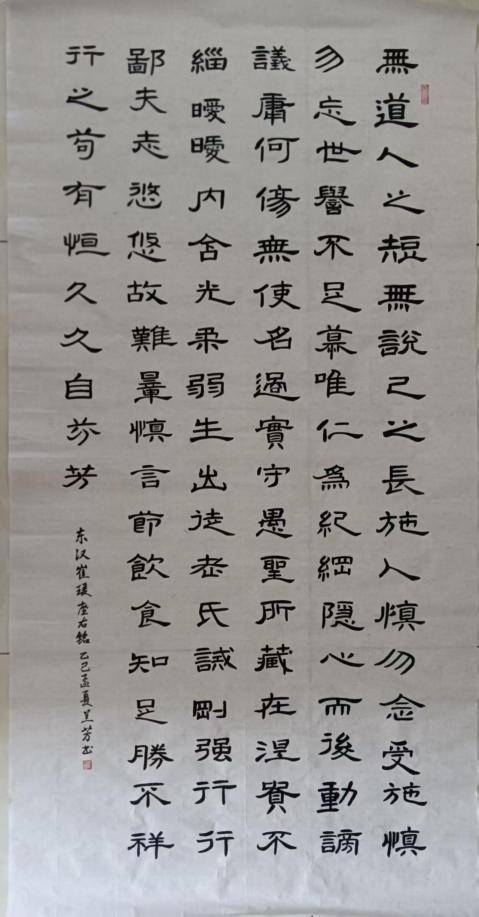 無道人之短無說己之長施人慎勿念受施慎
勿忘世譽不足慕唯仁為紀綱隱心而後動謗
議庸何傷無使名過實守愚聖所藏在涅貴不
緇曖曖内含光柔弱生出徒老氏誡剛强行行
鄙夫志悠悠故難量慎言節飲食知足勝不祥
行之苟有恒久久自芬芳
东汉崔瑗座右铭乙巳孟夏兰芳书